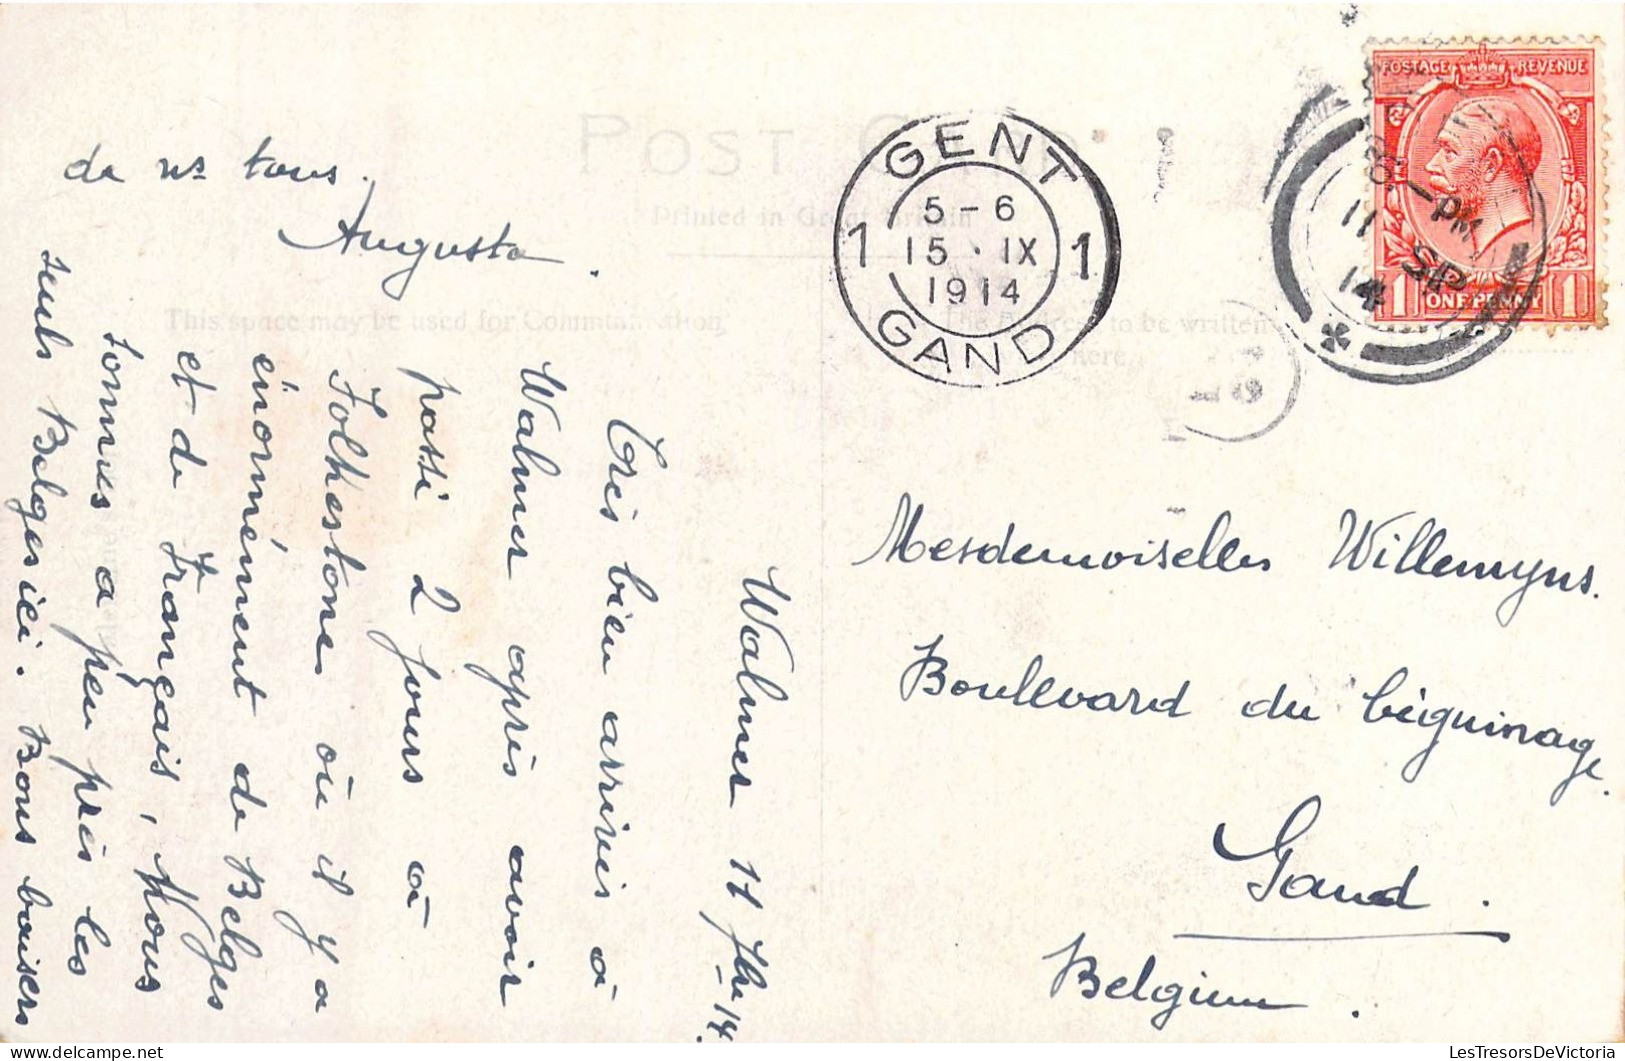 POST CARD
Printed in Great Britain
This space may be used for Communication,
The Address to be written
here
POSTAGE REVENUE
1 ONE PENNY 1
8 - PM
11 SP
14
GENT
5 - 6
1 15 · IX 1
1914
GAND
Walmer 11 7bre 14.
Très bien arrivés à
Walmer après avoir
passé 2 jours à
Folkestone où il y a
énormément de Belges
et de Français, Nous
sommes à peu près les
seuls Belges ici. Bons baisers
de ns tous.
Augusta.
Mesdemoiselles Willemyns.
Boulevard du béguinage.
Gand.
Belgium.
LesTresorsDeVictoria